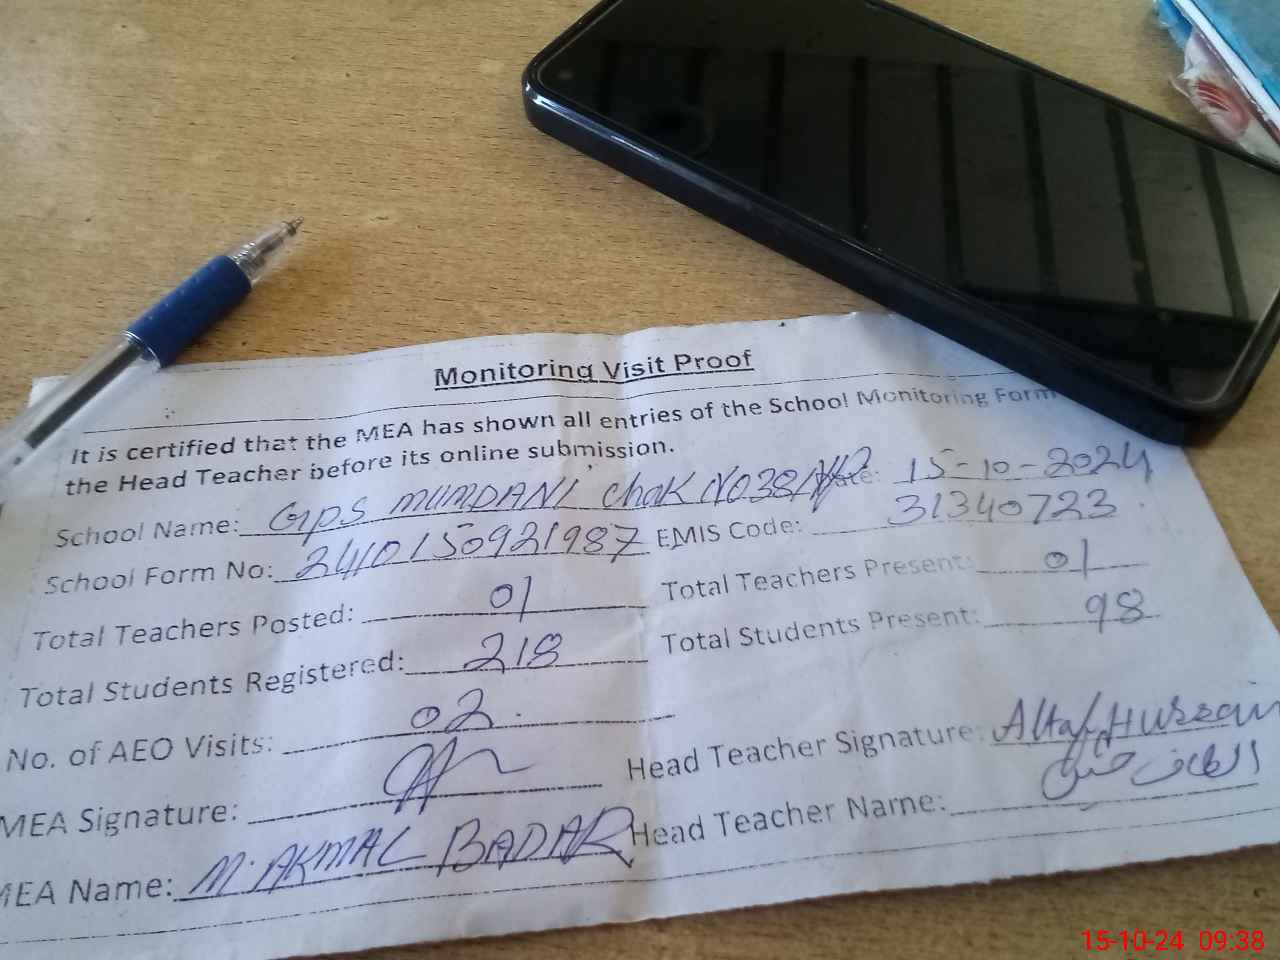 Monitoring Visit Proof
It is certified that the MEA has shown all entries of the School Monitoring Form
the Head Teacher before its online submission.
School Name: GPS MUMDANI Chak NO 38/ Date: 15-10-2024
School Form No: 2410150921987 EMIS Code: 31340723
Total Teachers Posted: 01 Total Teachers Present: 01
Total Students Registered: 218 Total Students Present: 98
No. of AEO Visits: 02
MEA Signature: Head Teacher Signature: Altaf Hussain
MEA Name: M. AKMAL BADAR Head Teacher Name: الطاف حسین
15-10-24 09:38